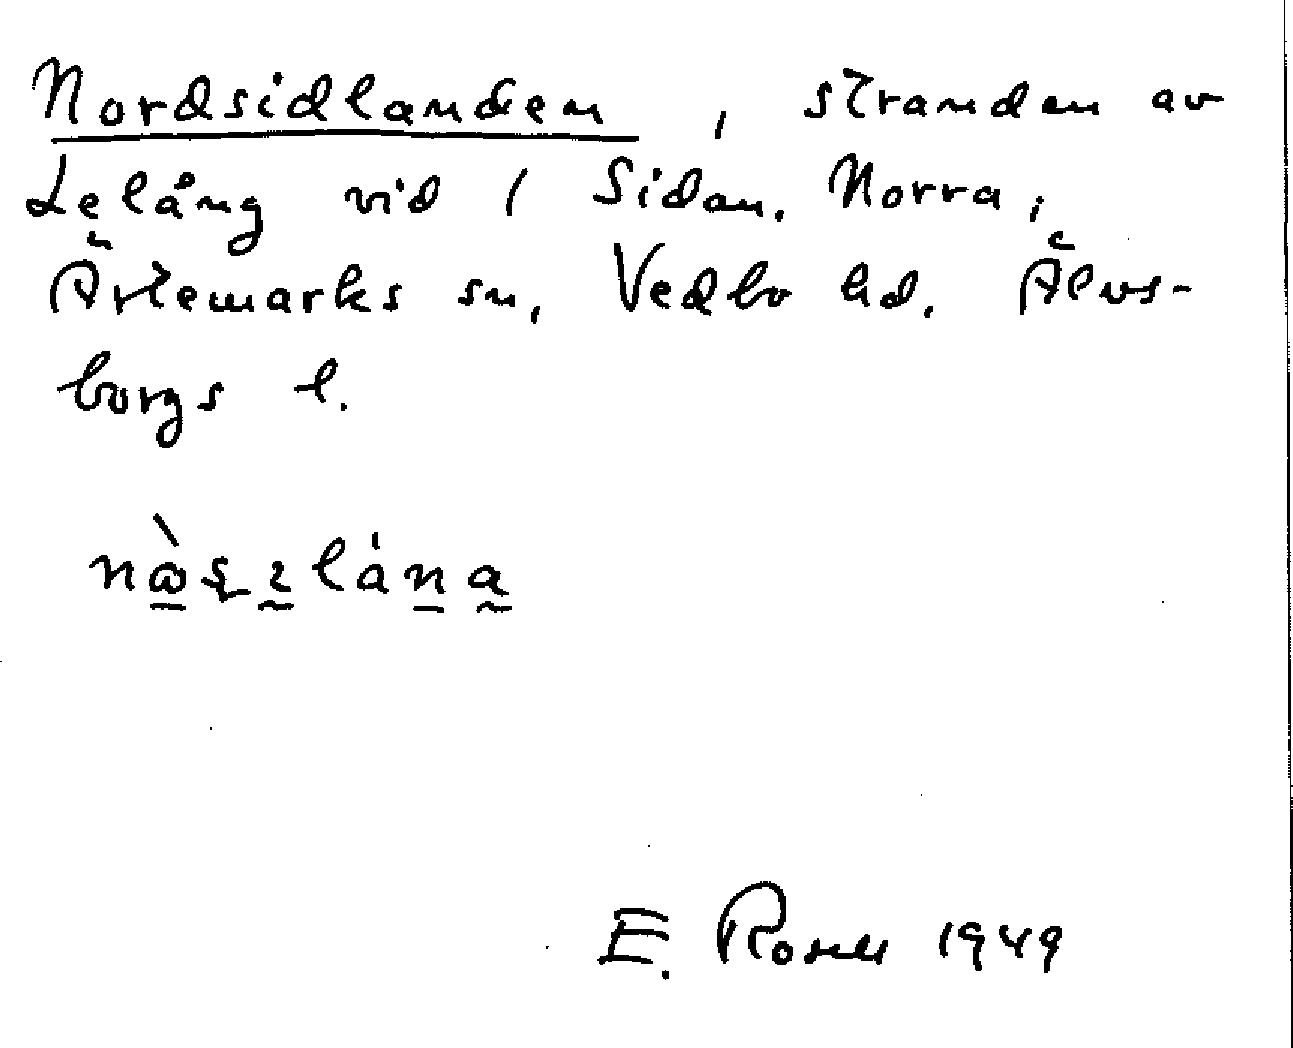 Nordsidlanden, stranden av
Lelång vid / Sidan, Norra,
Ärtemarks sn, Vedbo hd. Älvs-
borgs l.
E. Rosell 1949